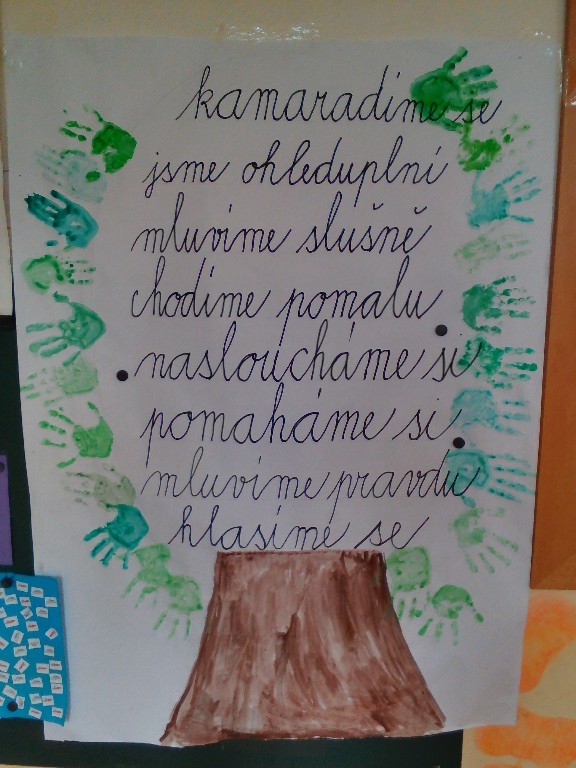 kamaradíme se
jsme ohleduplní
mluvíme slušně
chodíme pomalu
nasloucháme si
pomaháme si
mluvíme pravdu
hlasíme se